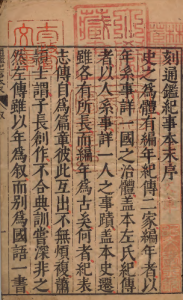 刻通鑑紀事本末序
史之為體有編年紀傳二家編年者以
年系事詳一國之治體蓋本左氏紀傳
者以人系事詳一人之事蹟蓋本史遷
雖各有所長而編年為古矣何者紀表
志傳自為篇章彼此互出不無煩複蕭
穎士謂子長創作不合典訓嘗深非之
然左傳雖以年為叙而別為國語一書